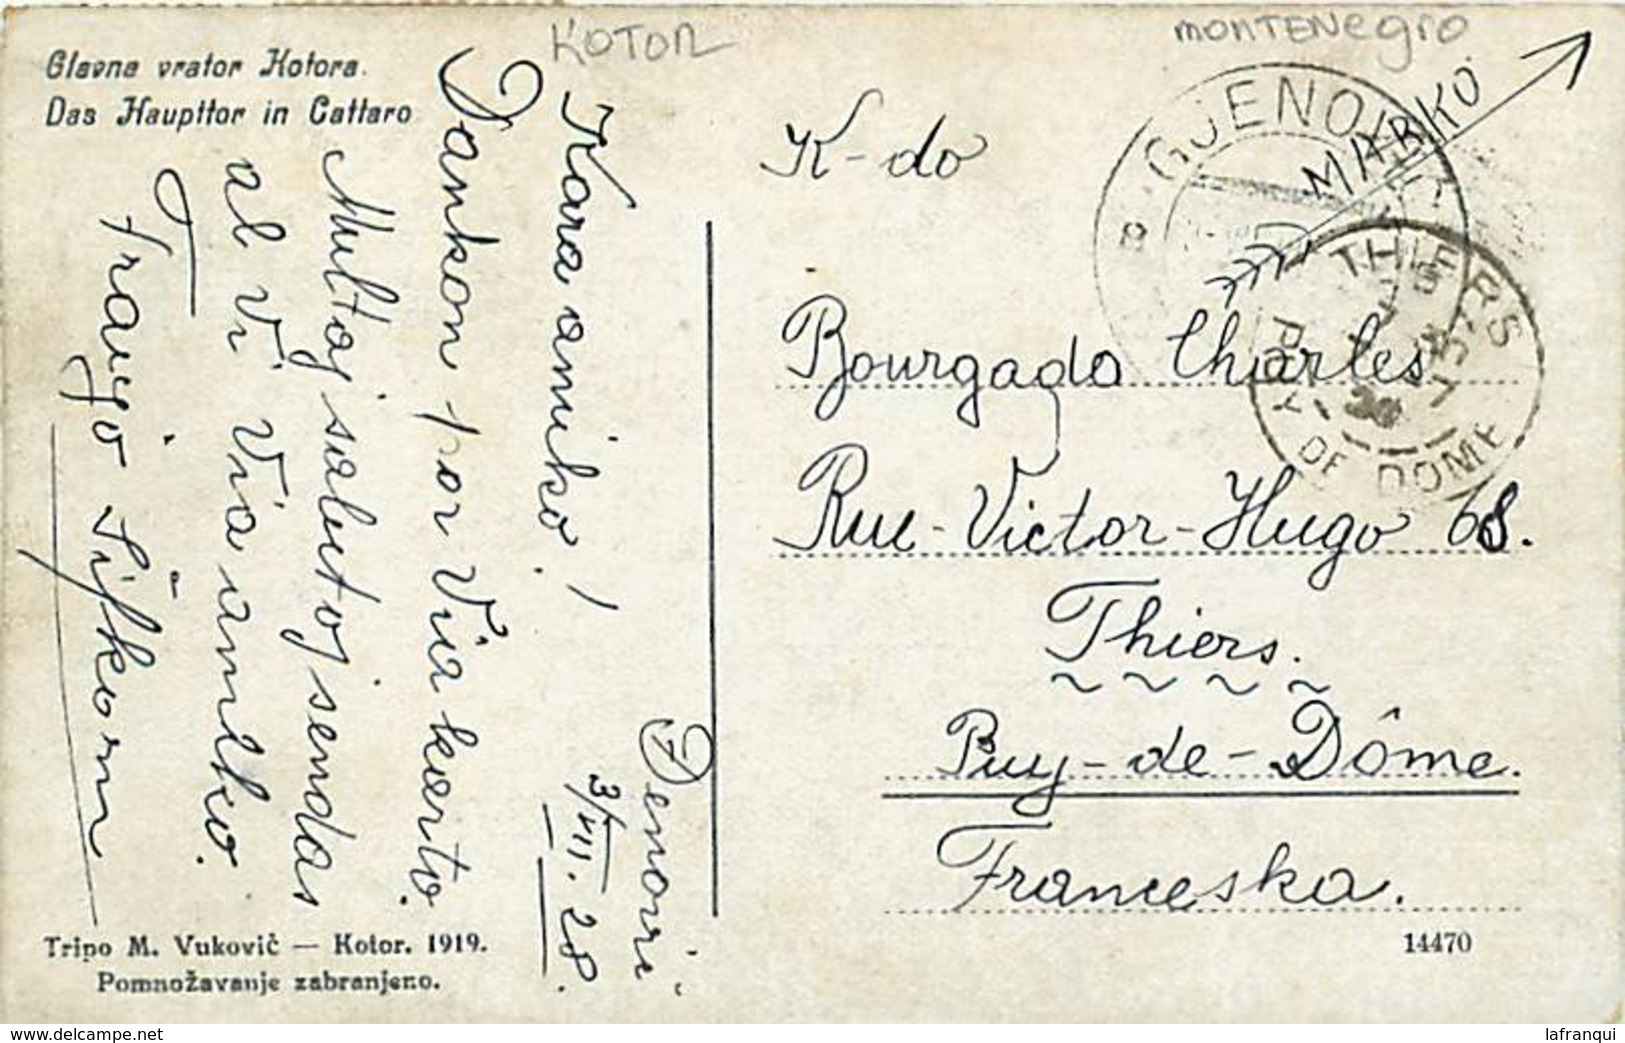 KOTOR
MONTENegro
Glavna vrator Kotora.
Das Haupttor in Cattaro
Denovic,
3/VII. 28.
Kara amiko!
Dankon por Via karto.
Multoj salutoj sendas
al Vi Via amiko.
Franjo
K-do
Bourgade Charles
Rue-Victor-Hugo 68.
Thiers.
Puy-de-Dôme.
Franceska.
MARKO
GJENOVIĆ
B
THIERS
PUY DE DOME
Tripo M. Vukovič — Kotor. 1919.
Pomnožavanje zabranjeno.
14470
www.delcampe.net
lafranqui